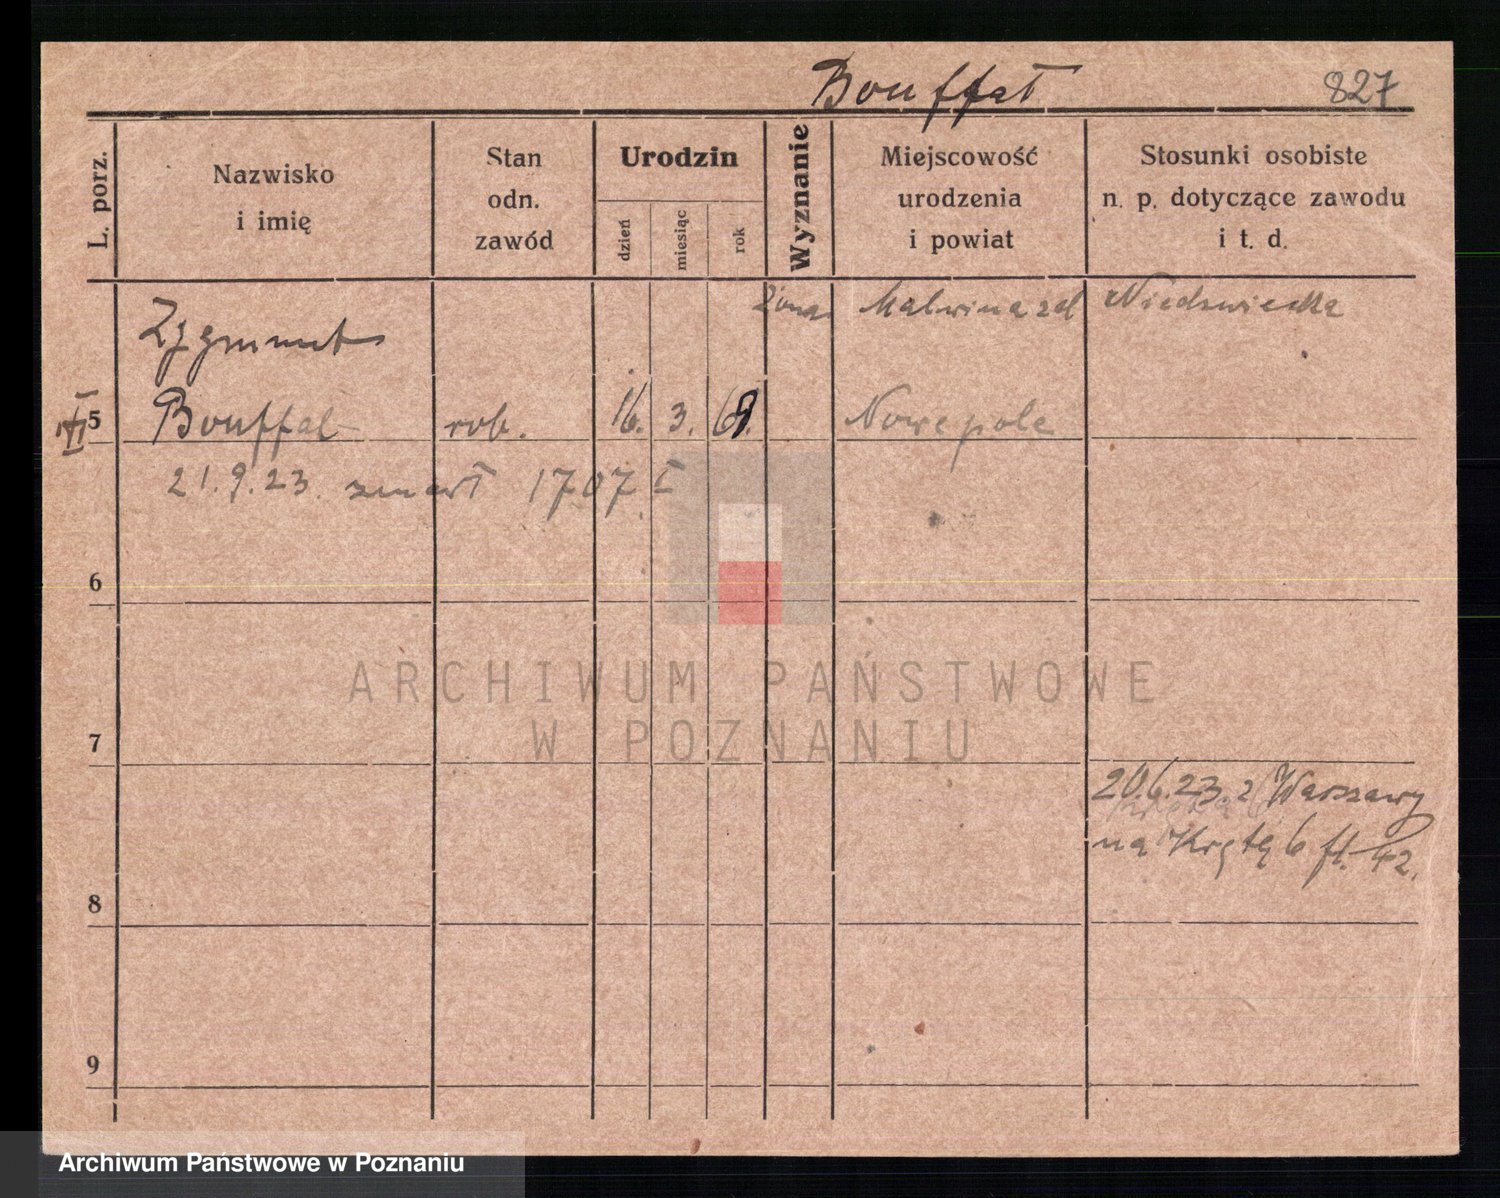 Bouffał 827
L. porz.
Nazwisko
i imię
Stan
odn.
zawód
Urodzin
dzień
miesiąc
rok
Wyznanie
Miejscowość
urodzenia
i powiat
Stosunki osobiste
n. p. dotyczące zawodu
i t. d.
żona Malwina zd Niedzwiecka
Zygmunt
5 Bouffał rob. 16. 3. 68. Nowe pole
21.9.23. zmarł 1707 I
6
ARCHIWUM PAŃSTWOWE
W POZNANIU
7
20.6.23. z Warszawy
na Krętą 6 ft. 42.
8
9
Archiwum Państwowe w Poznaniu